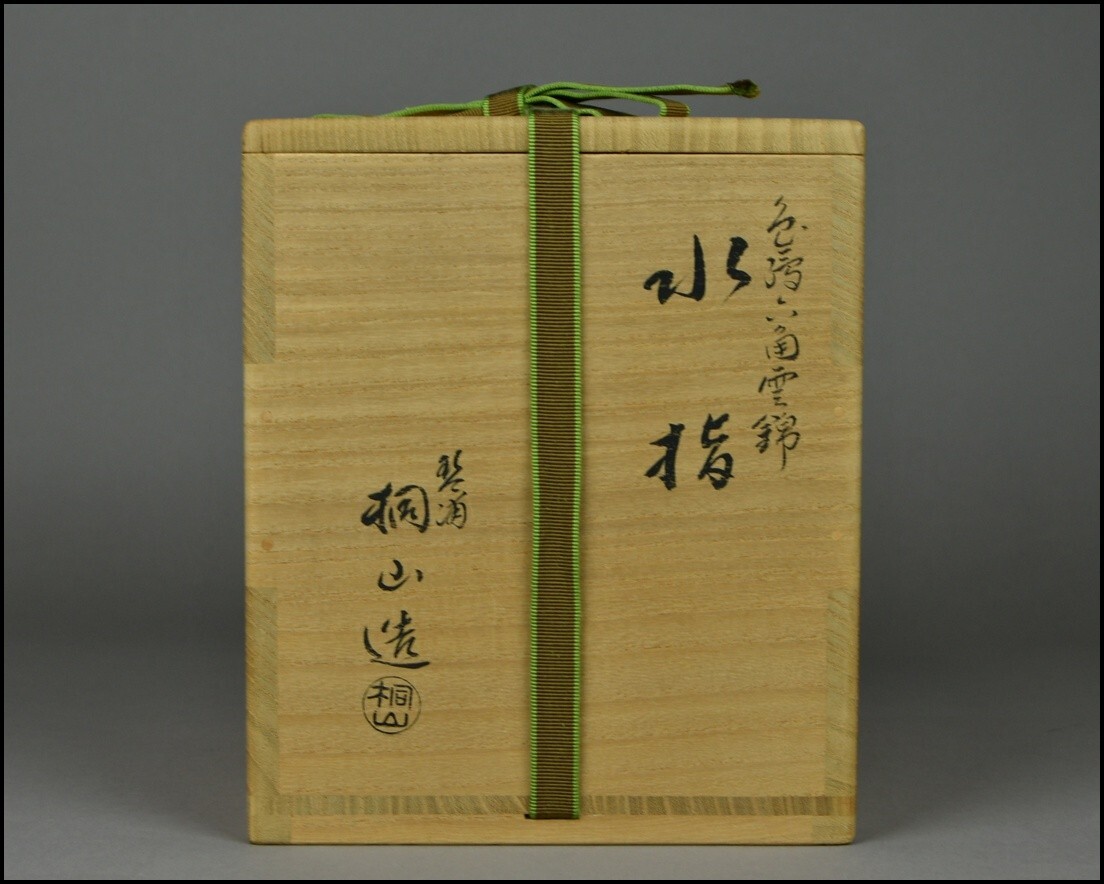 色繪六角雲錦
水指
琴浦
桐山造
桐山